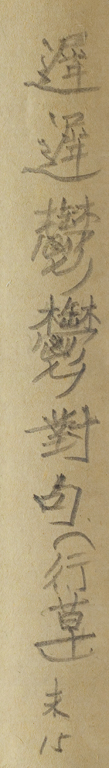 遲遲鬱鬱對句(行草)末15